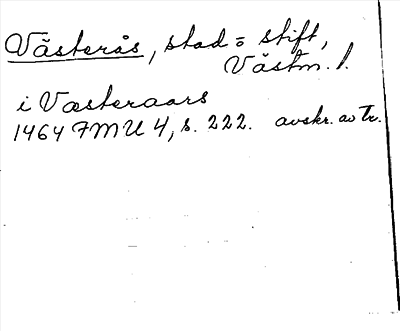 Västerås, stad o stift,
Västm. l.
i Vaesteraars
1464 FMU 4, s. 222. avskr. av Tr.